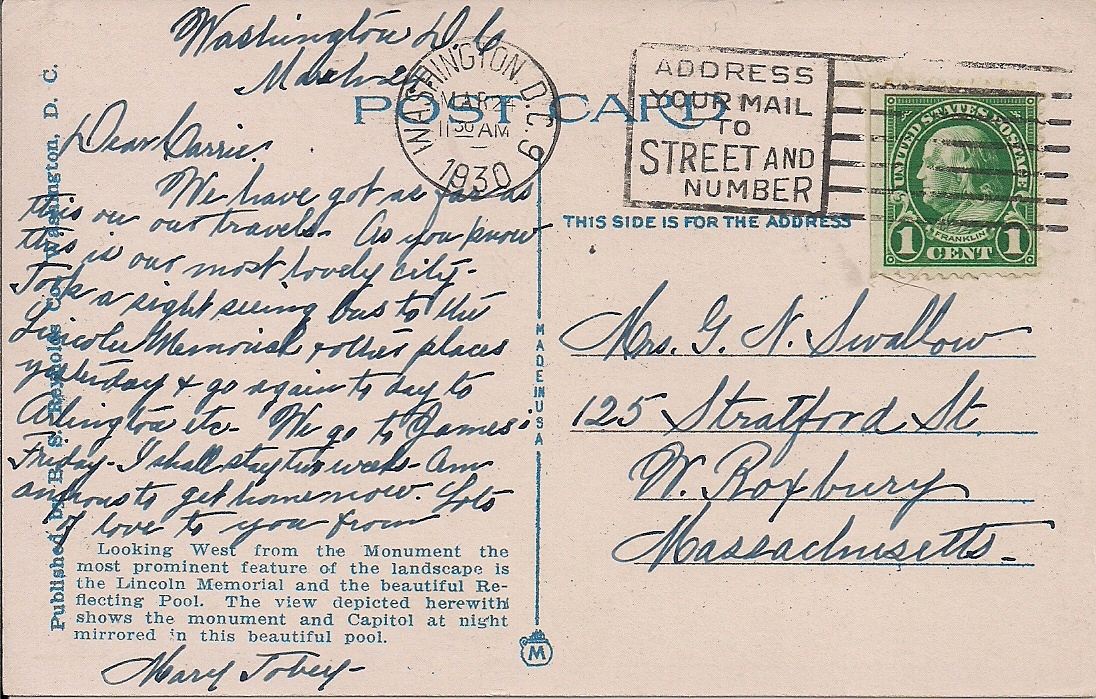 Washington D C
March 24
Dear Carrie.
We have got as far as
this on our travels. As you know
this is our most lovely city.
Took a sight seeing bus to the
Lincoln Memorial & other places
yesterday & go again to day to
Arlington etc. We go to James'
Friday. I shall stay two weeks. Am
anxious to get home now. Lots
of love to you from
Mary Tobey
Looking West from the Monument the
most prominent feature of the landscape is
the Lincoln Memorial and the beautiful Re-
flecting Pool. The view depicted herewith
shows the monument and Capitol at night
mirrored in this beautiful pool.
Published by B. S. Reynolds Co., Washington, D. C.
POST CARD
WASHINGTON, D.C. 9
MAR 24
11 30 AM
1930
ADDRESS
YOUR MAIL
TO
STREET AND
NUMBER
UNITED STATES POSTAGE
FRANKLIN
1 CENT 1
THIS SIDE IS FOR THE ADDRESS
MADE IN U S A
M
Mrs. G. N. Swallow
125 Stratford St
W. Roxbury
Massachusetts